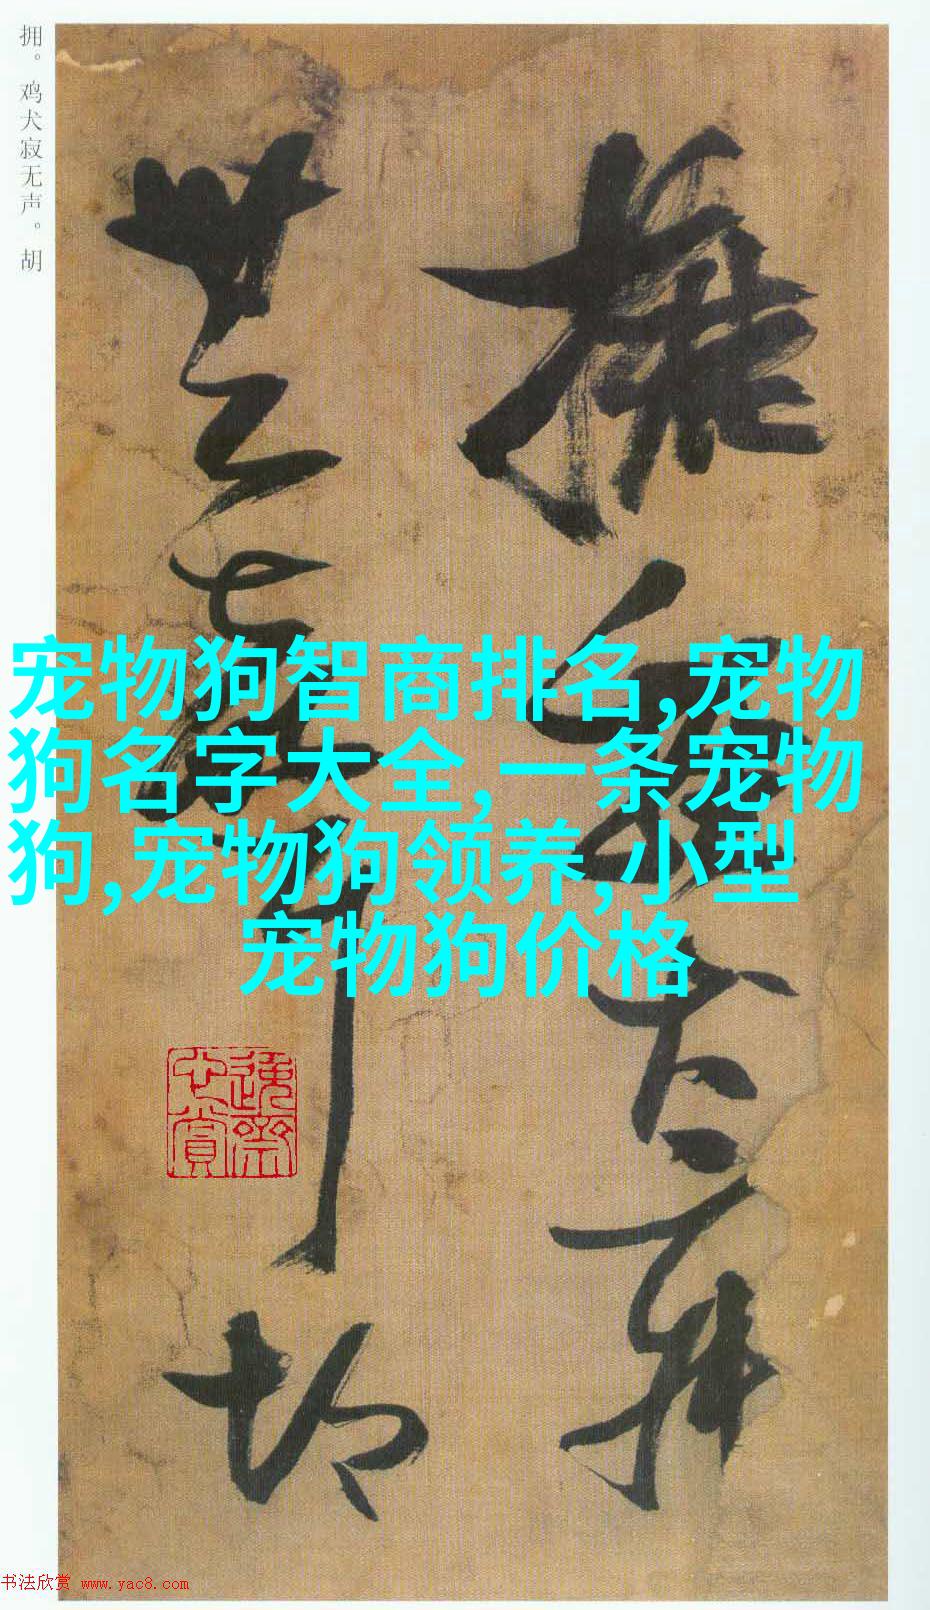 拥。鸡犬寂无声。胡
拥
鸡犬寂
无声
胡
宠物狗智商排名,宠物
狗名字大全,一条宠物
狗,宠物狗领养,小型
宠物狗价格
书法欣赏 www.yac8.com